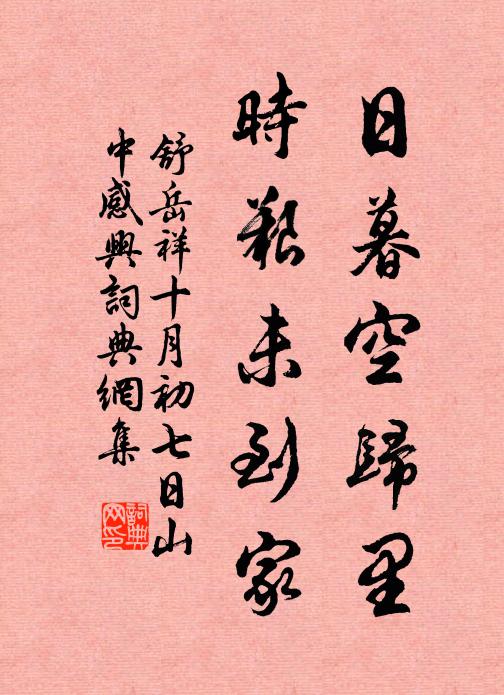 日暮空歸里
時艱未到家
舒岳祥十月初七日山
中感興詞典網集
詞典网印